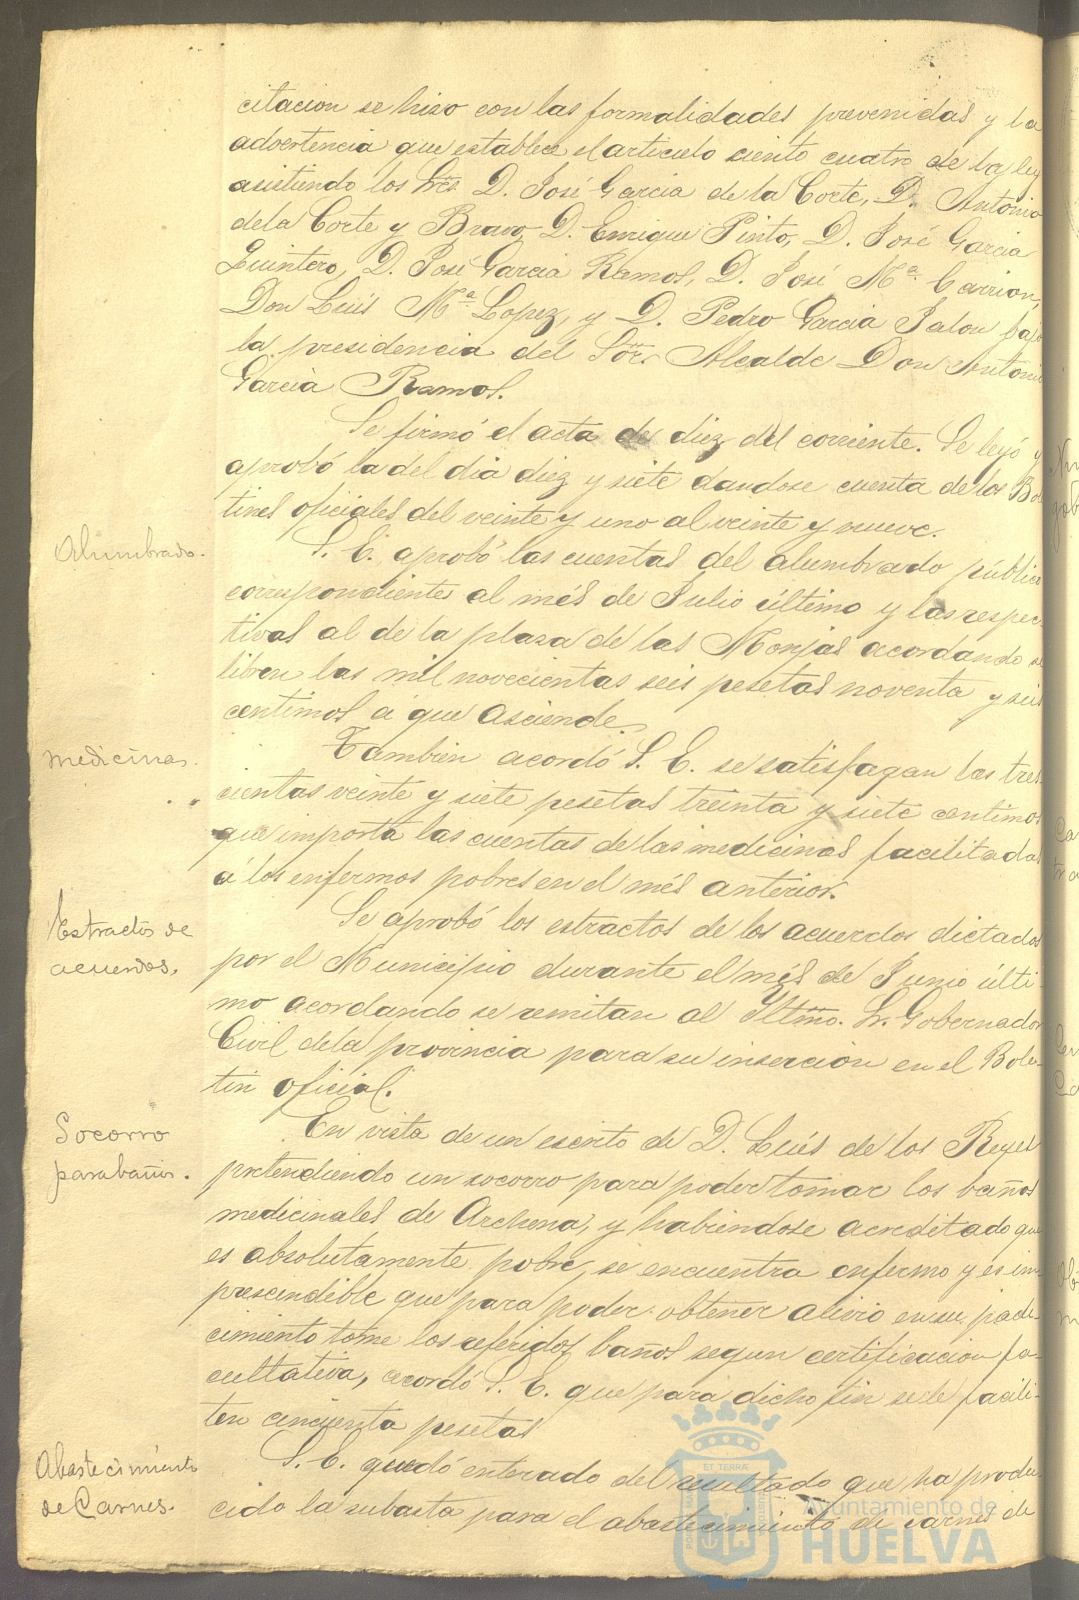 citacion se hizo con las formalidades prevenidas y la
advertencia que establece el articulo ciento cuatro de la ley
asistiendo los Sres. D. José Garcia de la Corte, D. Antonio
de la Corte y Bravo, D. Enrique Pinto, D. José Garcia
Quintero, D. José Garcia Ramos, D. José Mª Carrion,
Don Luis Mª Lopez, y D. Pedro Garcia Jalon bajo
la presidencia del Sor. Alcalde Don Antonio
Garcia Ramos.
Se firmó el acta de diez del corriente. Se leyó y
aprobó la del dia diez y siete dandose cuenta de los Bole
tines oficiales del veinte y uno al veinte y nueve.
Alumbrado.
S. E. aprobó las cuentas del alumbrado público
correspondientes al més de Julio último y las respec-
tivas al de la plaza de las Monjas acordando se
libren las mil novecientas seis pesetas noventa y seis
centimos á que asciende.
Medicinas.
Tambien acordó S. E. se satisfagan las tres
cientas veinte y siete pesetas treinta y siete centimos
que importa las cuentas de las medicinas facilitadas
á los enfermos pobres en el més anterior.
Extractos de
acuerdos.
Se aprobó los estractos de los acuerdos dictados
por el Municipio durante el més de Junio últi-
mo acordando se remitan al Yltmo. Sr. Gobernador
Civil de la provincia para su inserción en el Bole-
tin oficial.
Socorro
para baños.
En vista de un escrito de D. Luis de los Reyes
pretendiendo un socorro para poder tomar los baños
medicinales de Archena, y habiendose acreditado que
es absolutamente pobre, se encuentra enfermo y es im-
prescindible que para poder obtener alivio en su pade-
cimiento tome los referidos baños segun certificacion fa-
cultativa, acordó S. E. que para dicho fin se le facili-
ten cincuenta pesetas
Abastecimiento
de Carnes.
S. E. quedó enterado del resultado que ha produ-
cido la subasta para el abastecimiento de carnes de
Ayuntamiento de
HUELVA